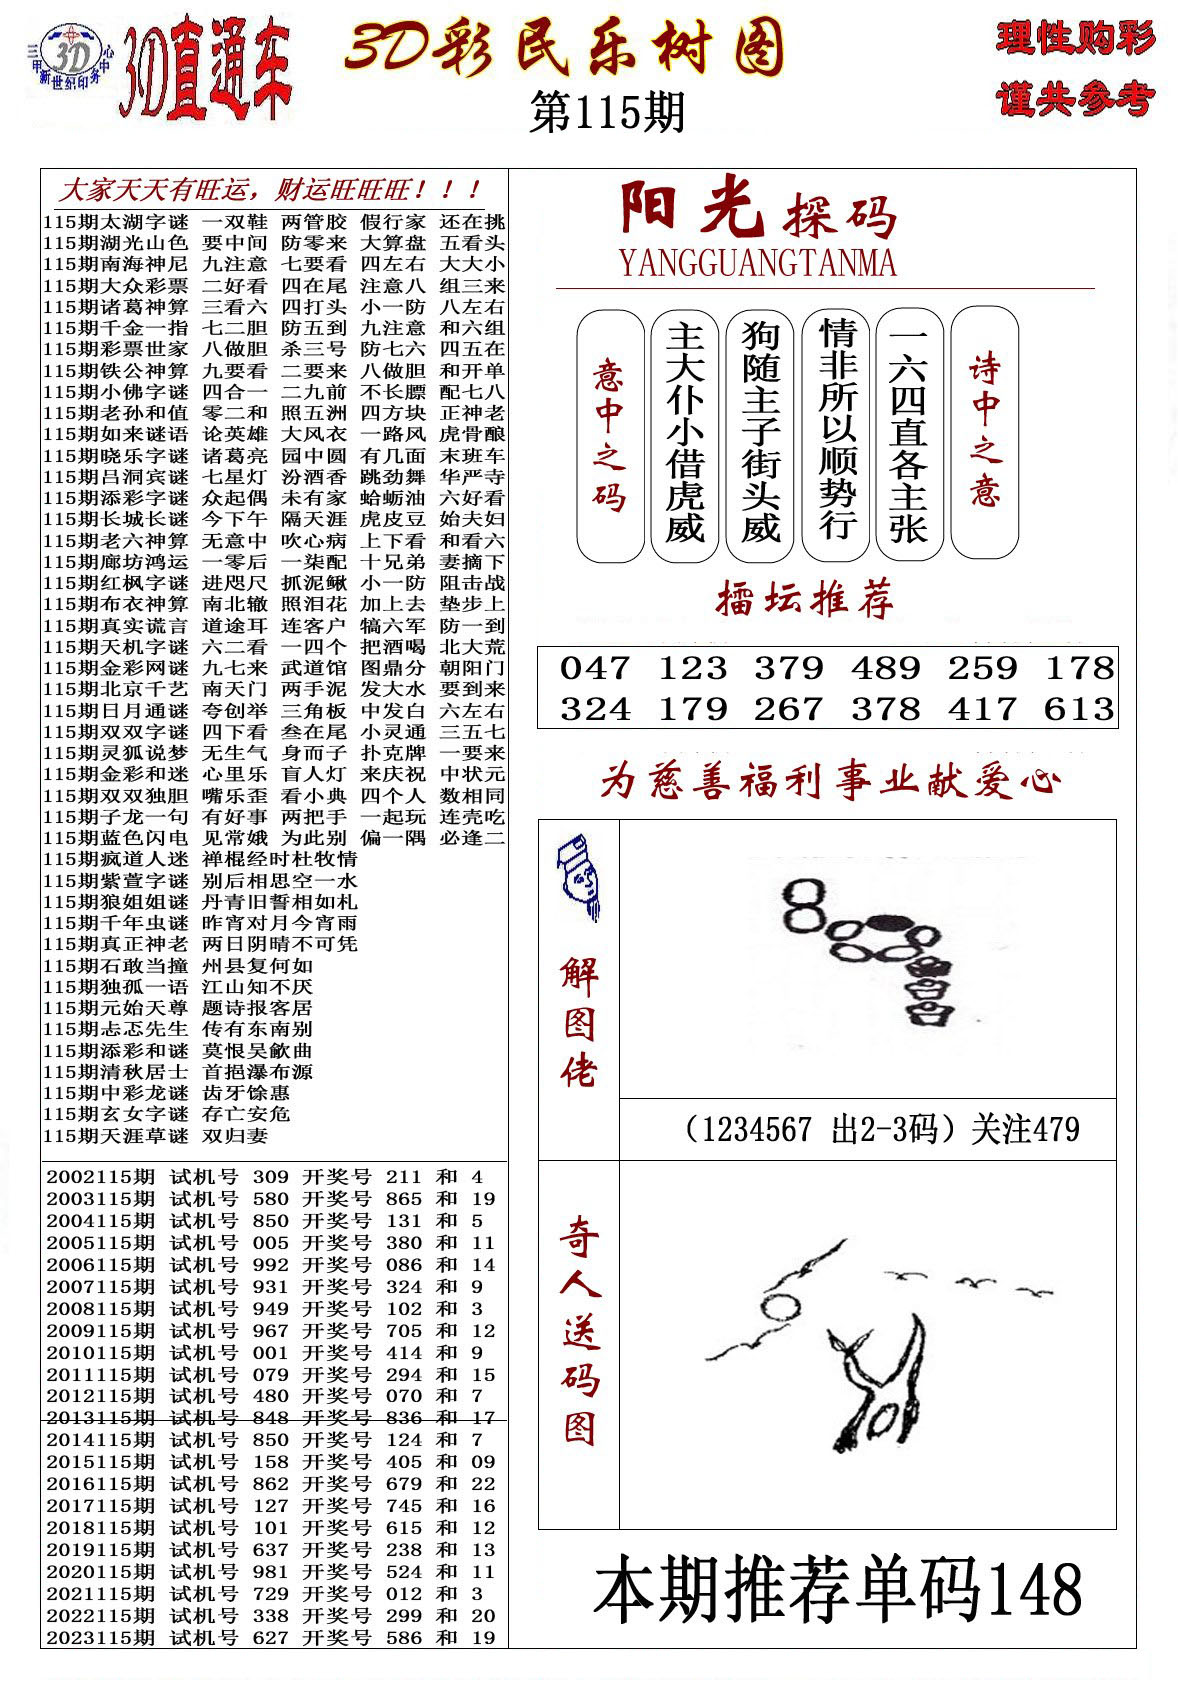 三甲新世纪印务中心
3D
3D直通车
3D彩民乐树图
第115期
理性购彩
谨共参考
大家天天有旺运，财运旺旺旺！！！
115期太湖字谜 一双鞋 两管胶 假行家 还在挑
115期湖光山色 要中间 防零来 大算盘 五看头
115期南海神尼 九注意 七要看 四左右 大大小
115期大众彩票 二好看 四在尾 注意八 组三来
115期诸葛神算 三看六 四打头 小一防 八左右
115期千金一指 七二胆 防五到 九注意 和六组
115期彩票世家 八做胆 杀三号 防七六 四五在
115期铁公神算 九要看 二要来 八做胆 和开单
115期小佛字谜 四合一 二九前 不长膘 配七八
115期老孙和值 零二和 照五洲 四方块 正神老
115期如来谜语 论英雄 大风衣 一路风 虎骨酿
115期晓乐字谜 诸葛亮 园中圆 有几面 末班车
115期吕洞宾谜 七星灯 汾酒香 跳劲舞 华严寺
115期添彩字谜 众起偶 未有家 蛤蛎油 六好看
115期长城长谜 今下午 隔天涯 虎皮豆 始夫妇
115期老六神算 无意中 吹心病 上下看 和看六
115期廊坊鸿运 一零后 一柒配 十兄弟 妻摘下
115期红枫字谜 进咫尺 抓泥鳅 小一防 阻击战
115期布衣神算 南北辙 照泪花 加上去 垫步上
115期真实谎言 道途耳 连客户 犒六军 防一到
115期天机字谜 六二看 一四个 把酒喝 北大荒
115期金彩网谜 九七来 武道馆 图鼎分 朝阳门
115期北京千艺 南天门 两手泥 发大水 要到来
115期日月通谜 夸创举 三角板 中发白 六左右
115期双双字谜 四下看 叁在尾 小灵通 三五七
115期灵狐说梦 无生气 身而子 扑克牌 一要来
115期金彩和迷 心里乐 盲人灯 来庆祝 中状元
115期双双独胆 嘴乐歪 看小典 四个人 数相同
115期子龙一句 有好事 两把手 一起玩 连壳吃
115期蓝色闪电 见常娥 为此别 偏一隅 必逢二
115期疯道人迷 禅棍经时杜牧情
115期紫萱字谜 别后相思空一水
115期狼姐姐谜 丹青旧誓相如札
115期千年虫谜 昨宵对月今宵雨
115期真正神老 两日阴晴不可凭
115期石敢当撞 州县复何如
115期独孤一语 江山知不厌
115期元始天尊 题诗报客居
115期忐忑先生 传有东南别
115期添彩和谜 莫恨吴歈曲
115期清秋居士 首挹瀑布源
115期中彩龙谜 齿牙馀惠
115期玄女字谜 存亡安危
115期天涯草谜 双归妻
2002115期 试机号 309 开奖号 211 和 4
2003115期 试机号 580 开奖号 865 和 19
2004115期 试机号 850 开奖号 131 和 5
2005115期 试机号 005 开奖号 380 和 11
2006115期 试机号 992 开奖号 086 和 14
2007115期 试机号 931 开奖号 324 和 9
2008115期 试机号 949 开奖号 102 和 3
2009115期 试机号 967 开奖号 705 和 12
2010115期 试机号 001 开奖号 414 和 9
2011115期 试机号 079 开奖号 294 和 15
2012115期 试机号 480 开奖号 070 和 7
2013115期 试机号 848 开奖号 836 和 17
2014115期 试机号 850 开奖号 124 和 7
2015115期 试机号 158 开奖号 405 和 09
2016115期 试机号 862 开奖号 679 和 22
2017115期 试机号 127 开奖号 745 和 16
2018115期 试机号 101 开奖号 615 和 12
2019115期 试机号 637 开奖号 238 和 13
2020115期 试机号 981 开奖号 524 和 11
2021115期 试机号 729 开奖号 012 和 3
2022115期 试机号 338 开奖号 299 和 20
2023115期 试机号 627 开奖号 586 和 19
阳光探码
YANGGUANGTANMA
诗中之意
一六四直各主张
情非所以顺势行
狗随主子街头威
主大仆小借虎威
意中之码
擂坛推荐
047 123 379 489 259 178
324 179 267 378 417 613
为慈善福利事业献爱心
解图佬
（1234567 出2-3码）关注479
奇人送码图
本期推荐单码148